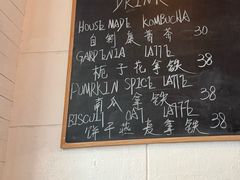 DRINK
HOUSE MADE KOMBUCHA
自制康普茶 30
GARDENIA LATTE
栀子花拿铁 38
PUMPKIN SPICE LATTE
南瓜拿铁 38
BISCUIT OAT LATTE
饼干燕麦拿铁 38